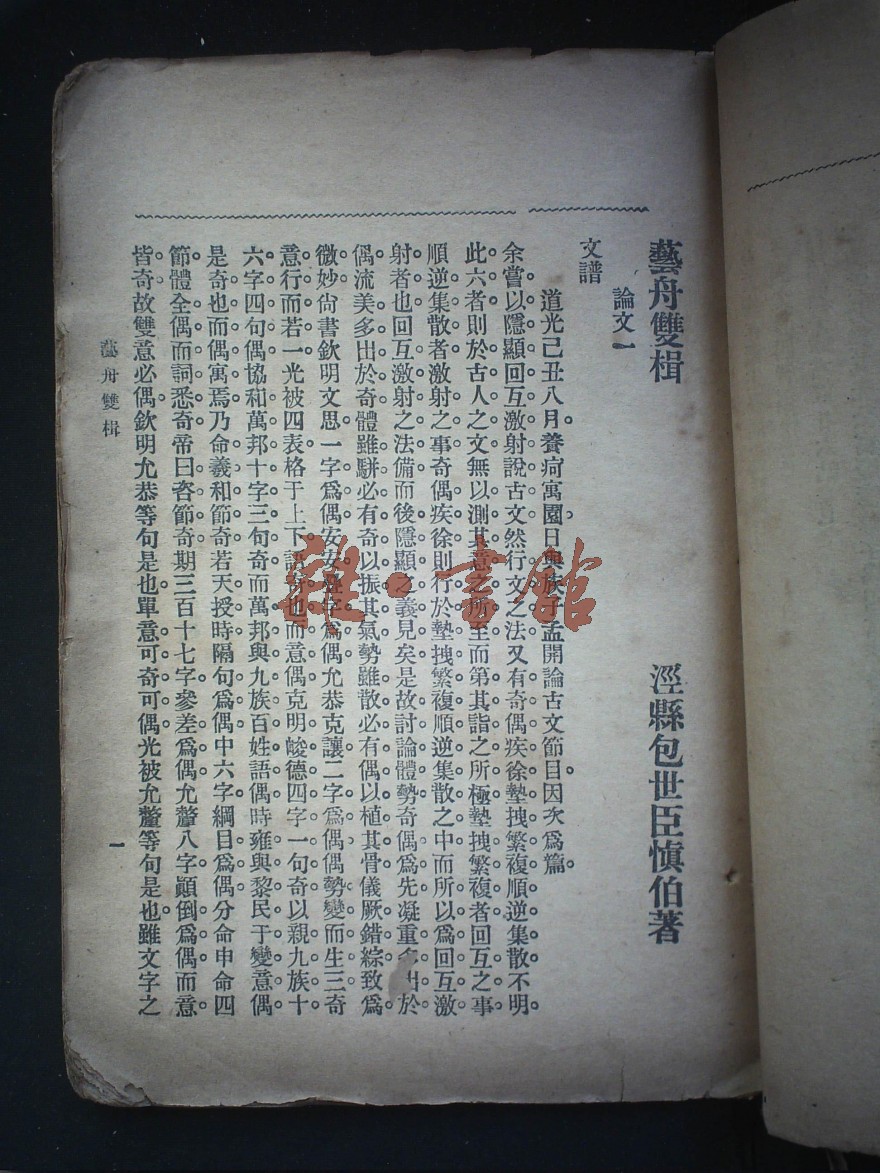 藝舟雙楫 涇縣包世臣慎伯著
論文一
文譜
道光己丑八月養疴寓園日與族子孟開論古文節目因次爲篇
余嘗以隱顯回互激射說古文然行文之法又有奇偶疾徐墊拽繁複順逆集散不明
此六者則於古人之文無以測其意之所至而第其詣之所極墊拽繁複者回互之事
順逆集散者激射之事奇偶疾徐則行於墊拽繁複順逆集散之中而所以爲回互激
射者也回互激射之法備而後隱顯之義見矣是故討論體勢奇偶爲先凝重多出於
偶流美多出於奇體雖駢必有奇以振其氣勢雖散必有偶以植其骨儀厥錯綜致爲
微妙尙書欽明文思一字爲偶安安疊字爲偶允恭克讓二字爲偶偶勢變而生三奇
意行而若一光被四表格于上下語奇也而意偶克明峻德四字一句奇以親九族十
六字四句偶協和萬邦十字三句奇而萬邦與九族百姓語偶時雍與黎民于變意偶
是奇也而偶寓焉乃命羲和節奇若天授時隔句爲偶中六字綱目爲偶分命申命四
節體全偶而詞悉奇帝曰咨節奇期三百十七字參差爲偶允釐八字顚倒爲偶而意
皆奇故雙意必偶欽明允恭等句是也單意可奇可偶光被允釐等句是也雖文字之
藝舟雙楫
一
雜·書館